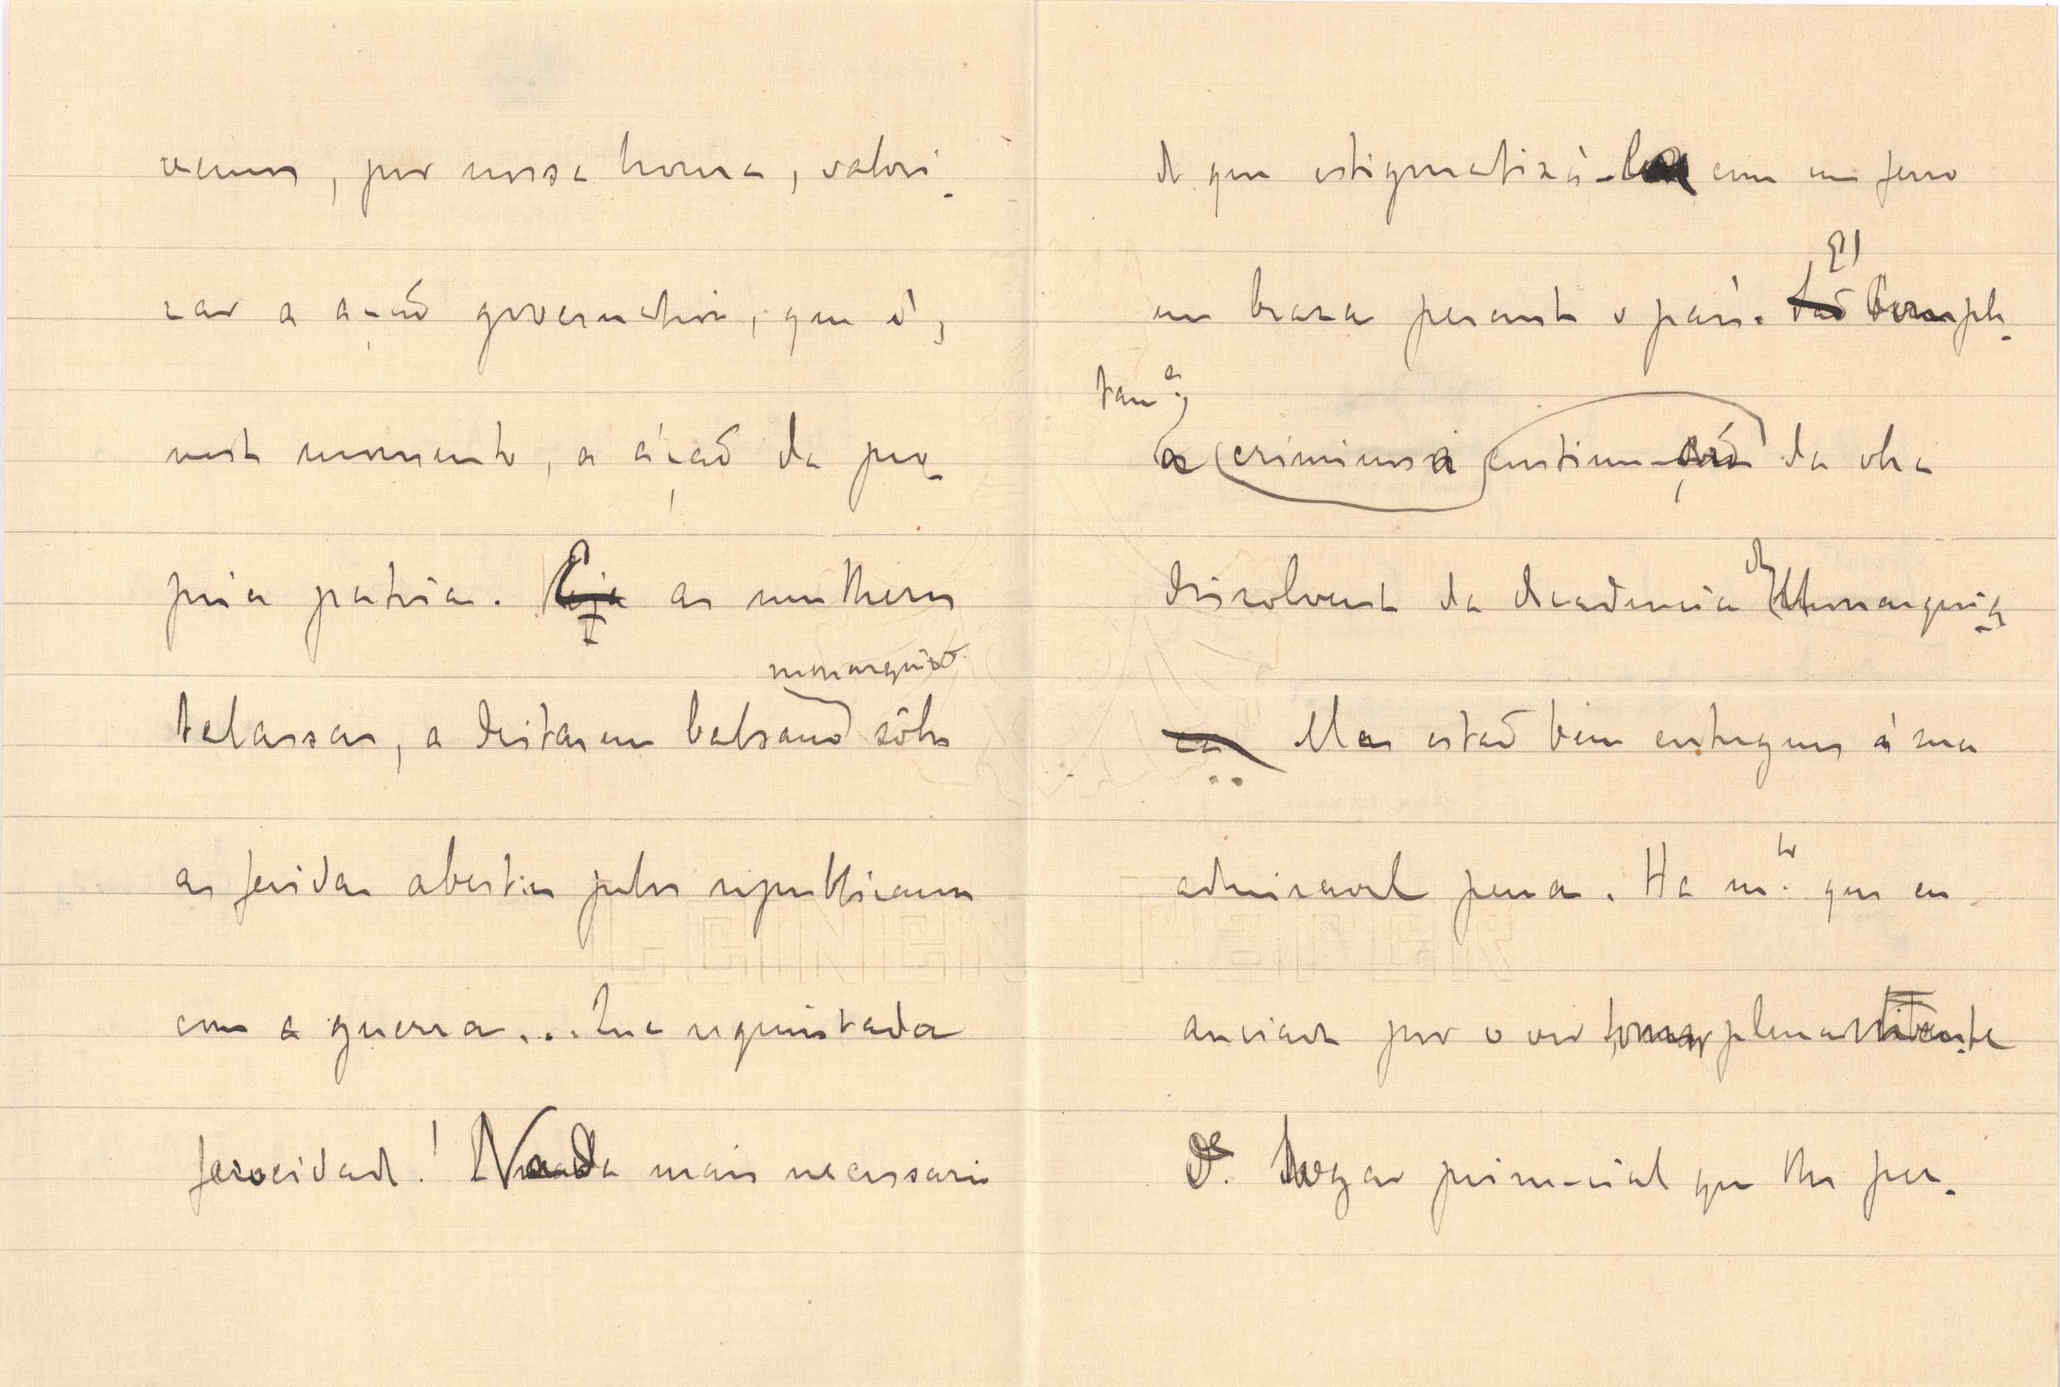 vemos, por nossa honra, valori-
zar a ação governativa, que é,
neste momento, a áção da pro-
pria patria. as mulheres
monarquico
talassas, a deitarem balsamo sôbre
as feridas abertas pelos republicanos
com a guerra... Que requintada
ferocidade! Nada mais necessario
do que estigmatizá-los com um ferro
em braza perante o país. São comple-
tam.
a criminosa continuação da obra
dissolvente da decadencia da Monarquia
Mas estão bem entregues á sua
admiravel pena. Ha m.to que eu
anciava por o ver tomar plenamente
o logar primacial que lhe per-
LEINEN PAPER